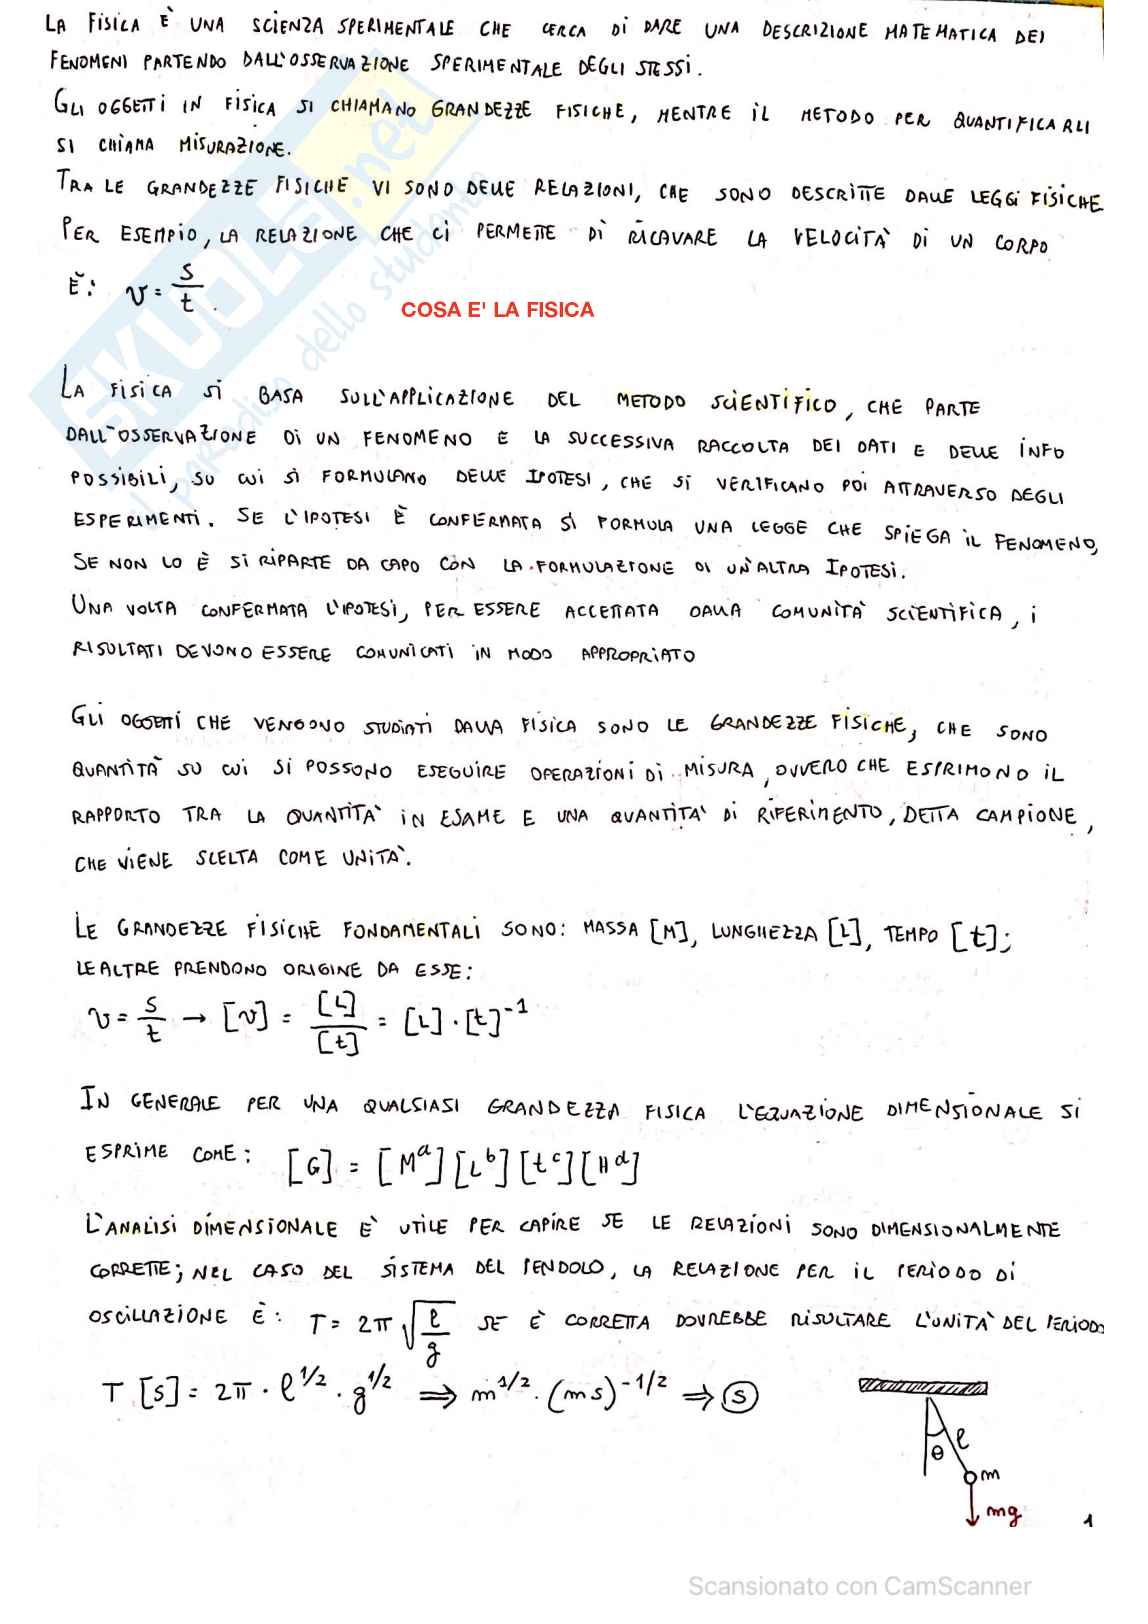 LA FISICA È UNA SCIENZA SPERIMENTALE CHE CERCA DI DARE UNA DESCRIZIONE MATEMATICA DEI
FENOMENI PARTENDO DALL'OSSERVAZIONE SPERIMENTALE DEGLI STESSI.
GLI OGGETTI IN FISICA SI CHIAMANO GRANDEZZE FISICHE, MENTRE IL METODO PER QUANTIFICARLI
SI CHIAMA MISURAZIONE.
TRA LE GRANDEZZE FISICHE VI SONO DELLE RELAZIONI, CHE SONO DESCRITTE DALLE LEGGI FISICHE
PER ESEMPIO, LA RELAZIONE CHE CI PERMETTE DI RICAVARE LA VELOCITÀ DI UN CORPO
È: v = s/t.
COSA E' LA FISICA
LA FISICA SI BASA SULL'APPLICAZIONE DEL METODO SCIENTIFICO, CHE PARTE
DALL'OSSERVAZIONE DI UN FENOMENO E LA SUCCESSIVA RACCOLTA DEI DATI E DELLE INFO
POSSIBILI, SU CUI SI FORMULANO DELLE IPOTESI, CHE SI VERIFICANO POI ATTRAVERSO DEGLI
ESPERIMENTI. SE L'IPOTESI È CONFERMATA SI FORMULA UNA LEGGE CHE SPIEGA IL FENOMENO,
SE NON LO È SI RIPARTE DA CAPO CON LA FORMULAZIONE DI UN'ALTRA IPOTESI.
UNA VOLTA CONFERMATA L'IPOTESI, PER ESSERE ACCETTATA DALLA COMUNITÀ SCIENTIFICA, I
RISULTATI DEVONO ESSERE COMUNICATI IN MODO APPROPRIATO
GLI OGGETTI CHE VENGONO STUDIATI DALLA FISICA SONO LE GRANDEZZE FISICHE, CHE SONO
QUANTITÀ SU CUI SI POSSONO ESEGUIRE OPERAZIONI DI MISURA, OVVERO CHE ESPRIMONO IL
RAPPORTO TRA LA QUANTITÀ IN ESAME E UNA QUANTITÀ DI RIFERIMENTO, DETTA CAMPIONE,
CHE VIENE SCELTA COME UNITÀ.
LE GRANDEZZE FISICHE FONDAMENTALI SONO: MASSA [M], LUNGHEZZA [L], TEMPO [t];
LE ALTRE PRENDONO ORIGINE DA ESSE:
v = s/t → [v] = [L]/[t] = [L]·[t]⁻¹
IN GENERALE PER UNA QUALSIASI GRANDEZZA FISICA L'EQUAZIONE DIMENSIONALE SI
ESPRIME COME: [G] = [Mᵃ][Lᵇ][tᶜ][Hᵈ]
L'ANALISI DIMENSIONALE È UTILE PER CAPIRE SE LE RELAZIONI SONO DIMENSIONALMENTE
CORRETTE; NEL CASO DEL SISTEMA DEL PENDOLO, LA RELAZIONE PER IL PERIODO DI
OSCILLAZIONE È: T = 2π √(ℓ/g) SE È CORRETTA DOVREBBE RISULTARE L'UNITÀ DEL PERIODO
T [s] = 2π · ℓ^1/2 · g^1/2 ⇒ m^1/2 · (ms)^-1/2 ⇒ s
θ ℓ
m
mg
1
SKUOLA.net
il paradiso dello studente
Scansionato con CamScanner